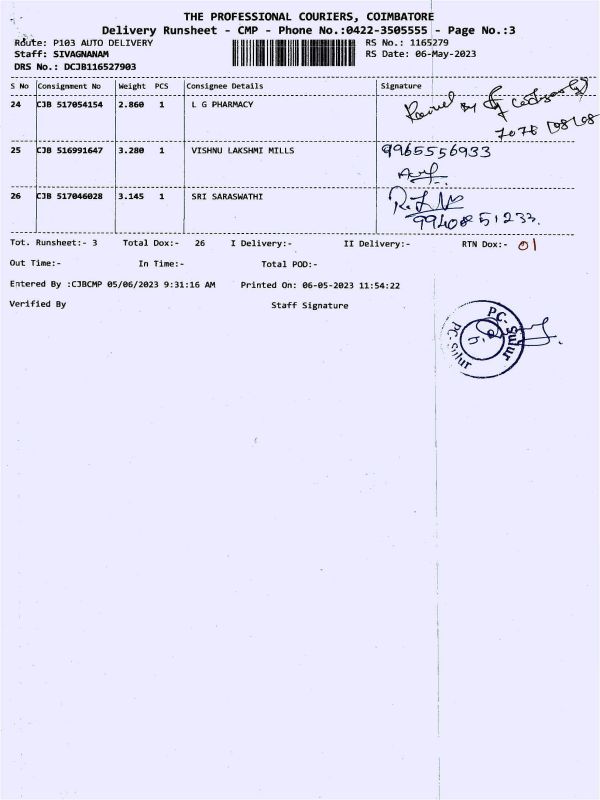 THE PROFESSIONAL COURIERS, COIMBATORE
Delivery Runsheet - CMP - Phone No.:0422-3505555 - Page No.:3
Route: P103 AUTO DELIVERY RS No.: 1165279
Staff: SIVAGNANAM RS Date: 06-May-2023
DRS No.: DCJB116527903
S No Consignment No Weight PCS Consignee Details Signature
24 CJB 517054154 2.860 1 L G PHARMACY
25 CJB 516991647 3.280 1 VISHNU LAKSHMI MILLS 9965556933
26 CJB 517046028 3.145 1 SRI SARASWATHI
9940851233.
Tot. Runsheet:- 3 Total Dox:- 26 I Delivery:- II Delivery:- RTN Dox:- 01
Out Time:- In Time:- Total POD:-
Entered By :CJBCMP 05/06/2023 9:31:16 AM Printed On: 06-05-2023 11:54:22
Verified By Staff Signature
PC-Sulur
PC-Sulur